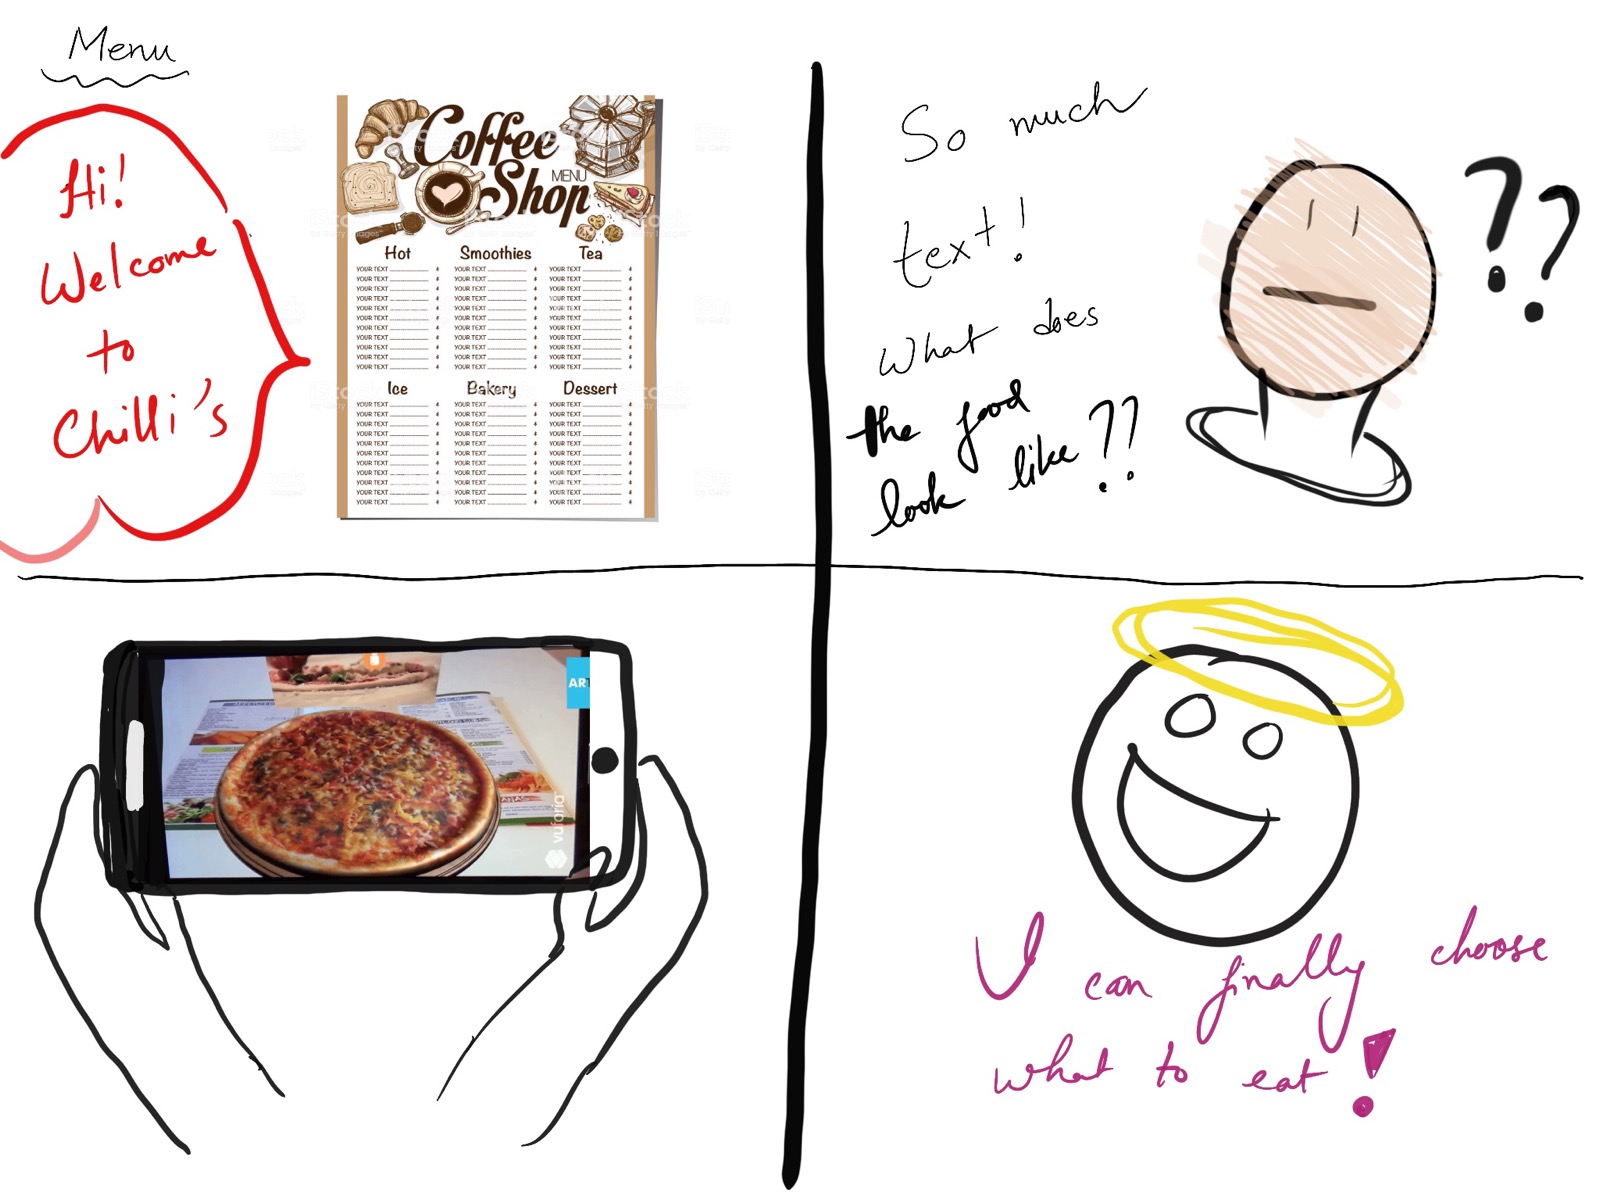 Menu
Hi!
Welcome
to
Chilli's
Coffee
Shop
MENU
Hot
Smoothies
Tea
YOUR TEXT YOUR TEXT YOUR TEXT
YOUR TEXT YOUR TEXT YOUR TEXT
YOUR TEXT YOUR TEXT YOUR TEXT
YOUR TEXT YOUR TEXT YOUR TEXT
YOUR TEXT YOUR TEXT YOUR TEXT
YOUR TEXT YOUR TEXT YOUR TEXT
YOUR TEXT YOUR TEXT YOUR TEXT
YOUR TEXT YOUR TEXT YOUR TEXT
YOUR TEXT YOUR TEXT YOUR TEXT
YOUR TEXT YOUR TEXT YOUR TEXT
YOUR TEXT YOUR TEXT YOUR TEXT
Ice
Bakery
Dessert
YOUR TEXT YOUR TEXT YOUR TEXT
YOUR TEXT YOUR TEXT YOUR TEXT
YOUR TEXT YOUR TEXT YOUR TEXT
YOUR TEXT YOUR TEXT YOUR TEXT
YOUR TEXT YOUR TEXT YOUR TEXT
YOUR TEXT YOUR TEXT YOUR TEXT
YOUR TEXT YOUR TEXT YOUR TEXT
YOUR TEXT YOUR TEXT YOUR TEXT
YOUR TEXT YOUR TEXT YOUR TEXT
YOUR TEXT YOUR TEXT YOUR TEXT
YOUR TEXT YOUR TEXT YOUR TEXT
So much
text!
What does
the food
look like??
??
AR
vuforia
I can finally choose
what to eat!